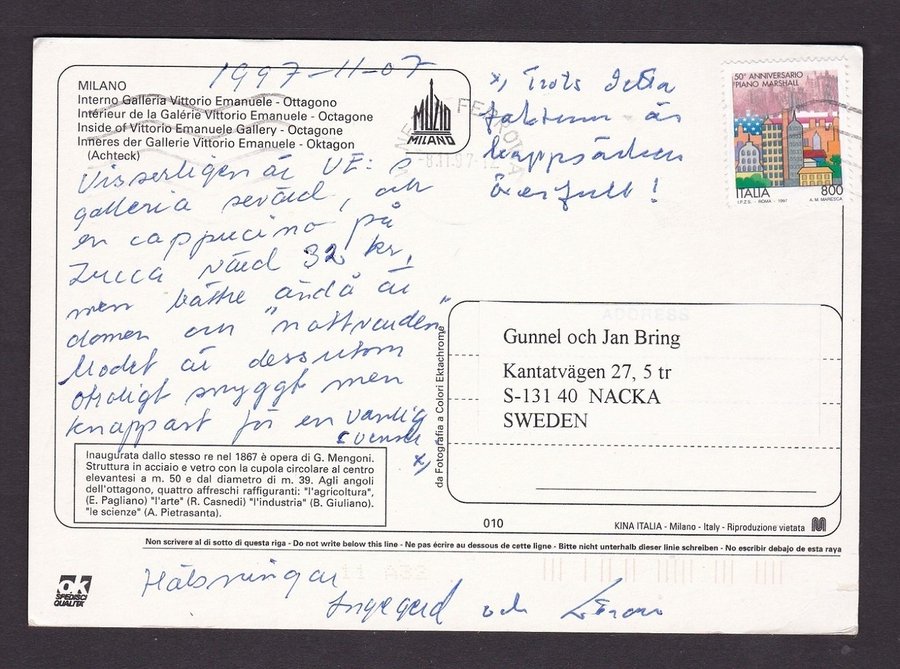 MILANO
Interno Galleria Vittorio Emanuele - Ottagono
Intérieur de la Galérie Vittorio Emanuele - Octagone
Inside of Vittorio Emanuele Gallery - Octagone
Inneres der Gallerie Vittorio Emanuele - Oktagon
(Achteck)
1997-11-07
MILANO
MILANO
Visserligen är VE:s
galleria sevärd, och
en cappucino på
Zucca värd 32 kr,
men bättre ändå är
domen och "nattvarden"
Modet är dessutom
otroligt snyggt men
knappast för en vanlig
svensk
x)
x) Trots detta
faktum är
kappsäcken
överfull!
FERROVIA
-8.11.97-
50° ANNIVERSARIO
PIANO MARSHALL
ITALIA 800
I.P.Z.S. - ROMA - 1997 A. M. MARESCA
da Fotografia a Colori Ektachrome
Gunnel och Jan Bring
Kantatvägen 27, 5 tr
S-131 40 NACKA
SWEDEN
Inaugurata dallo stesso re nel 1867 è opera di G. Mengoni.
Struttura in acciaio e vetro con la cupola circolare al centro
elevantesi a m. 50 e dal diametro di m. 39. Agli angoli
dell'ottagono, quattro affreschi raffiguranti: "l'agricoltura",
(E. Pagliano) "l'arte" (R. Casnedi) "l'industria" (B. Giuliano).
"le scienze" (A. Pietrasanta).
010
KINA ITALIA - Milano - Italy - Riproduzione vietata
Non scrivere al di sotto di questa riga - Do not write below this line - Ne pas écrire au dessous de cette ligne - Bitte nicht unterhalb dieser linie schreiben - No escribir debajo de esta raya
ok
SPEDISCI
QUALITA'
Hälsningar
Ingegerd och